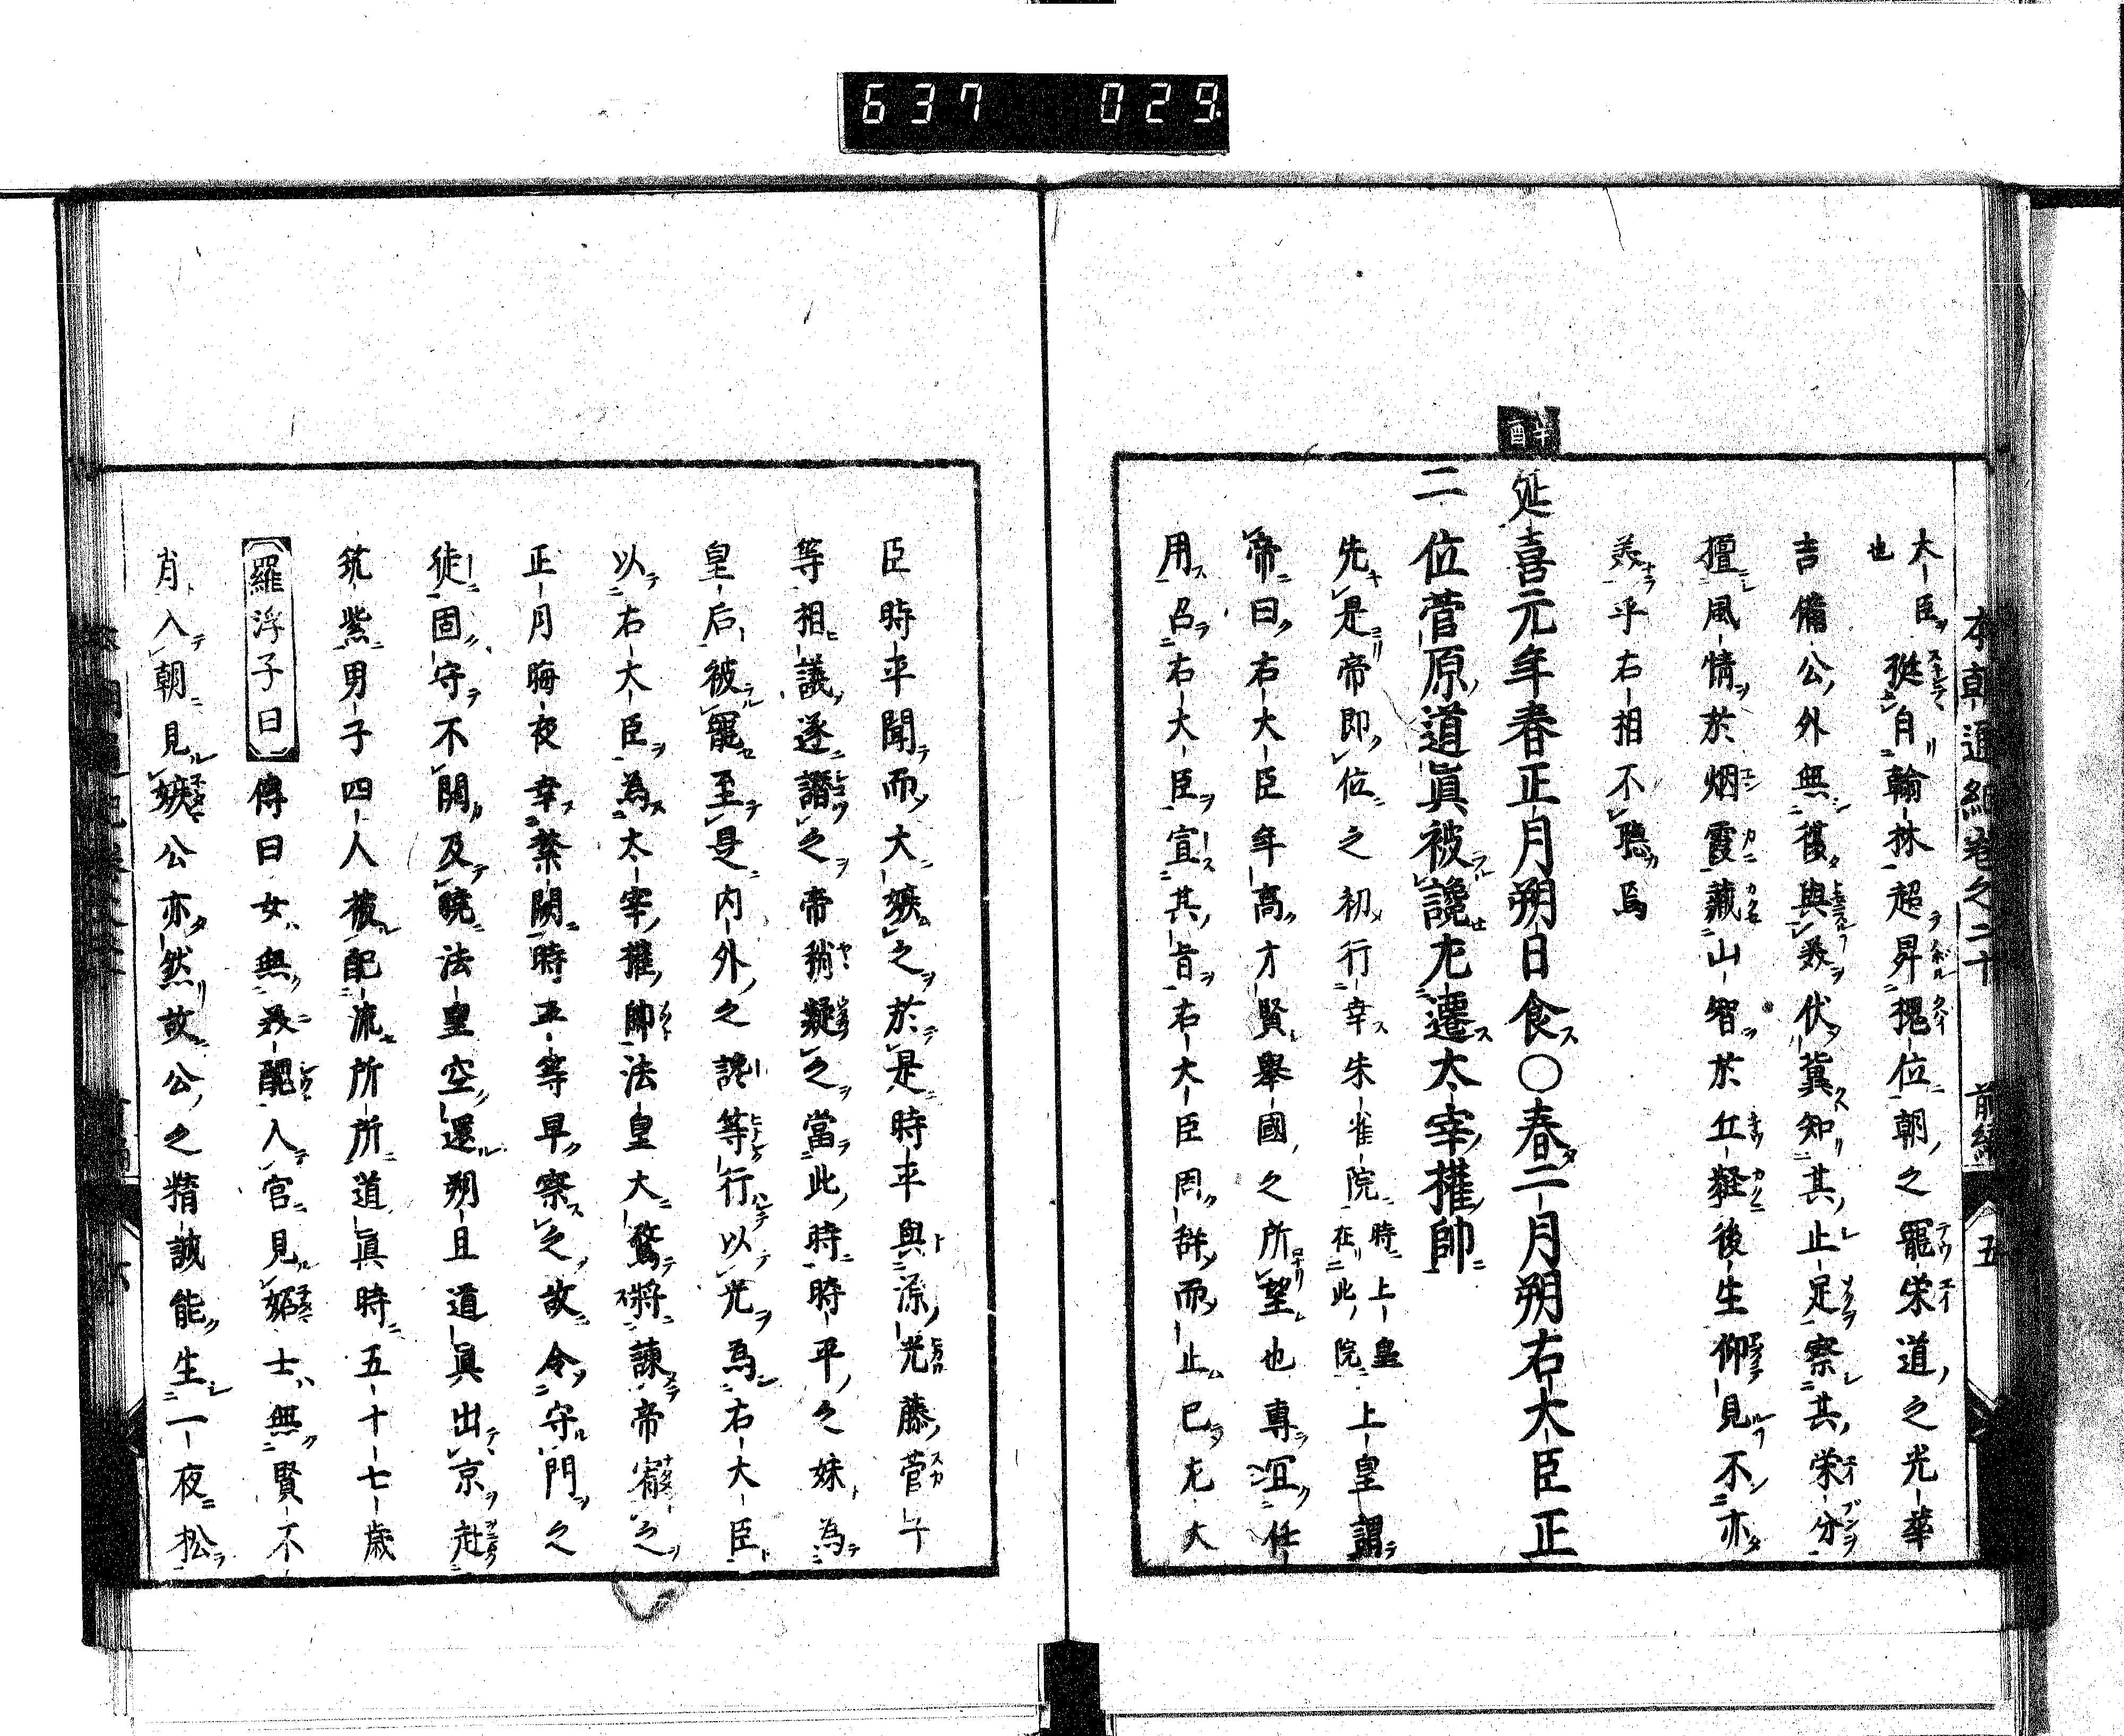 637 029
本朝通紀卷之二十 前編 五
大臣也 挺自翰林超昇槐位朝之寵栄道之光華
吉備公外無復與美伏冀知其止足察其栄分
擅風情於烟霞藏山智於丘壑後生仰見不亦
美乎右相不聽焉
辛酉
延喜元年春正月朔日食〇春二月朔右大臣正
二位菅原道眞被讒左遷太宰權帥
先是帝即位之初行幸朱雀院時上皇在此院上皇謂
帝曰右大臣年高才賢舉國之所望也專冝任
用召右大臣宣其旨右大臣固辞而止已左大
臣時平聞而大嫉之於是時平與源光藤菅
等相議遂譖之帝稍疑之當此時時平之妹為
皇后被寵至是内外之讒等行以光為右大臣
以右大臣為太宰權帥法皇大驚將諫帝宥之
正月晦夜幸禁闕時平等早察之故令守門之
徒固守不開及曉法皇空還朔旦道眞出京赴
筑紫男子四人被配流所所道眞時五十七歳
羅浮子曰 傳曰女無美醜入宮見妬士無賢不
肖入朝見嫉公亦然故公之精誠能生一夜松